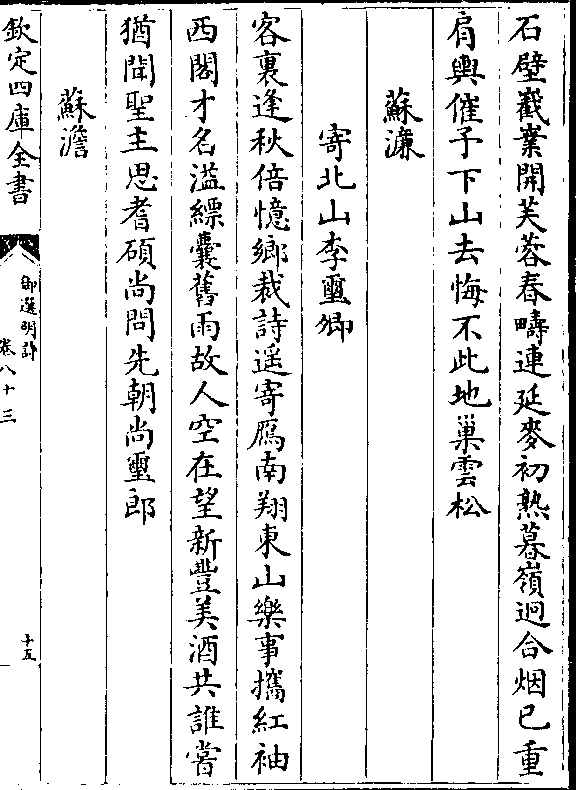 石壁巀嶪開芙蓉春疇連延麥初熟暮嶺迥合烟已重
肩輿催予下山去悔不此地巢雲松
蘇濂
寄北山李璽卿
客裏逢秋倍憶鄉裁詩遥寄雁南翔東山樂事攜紅袖
西閣才名溢縹囊舊雨故人空在望新豐美酒共誰嘗
猶聞聖主思耆碩尚問先朝尚璽郎
蘇澹
欽定四庫全書
御選明詩
卷八十三
十五